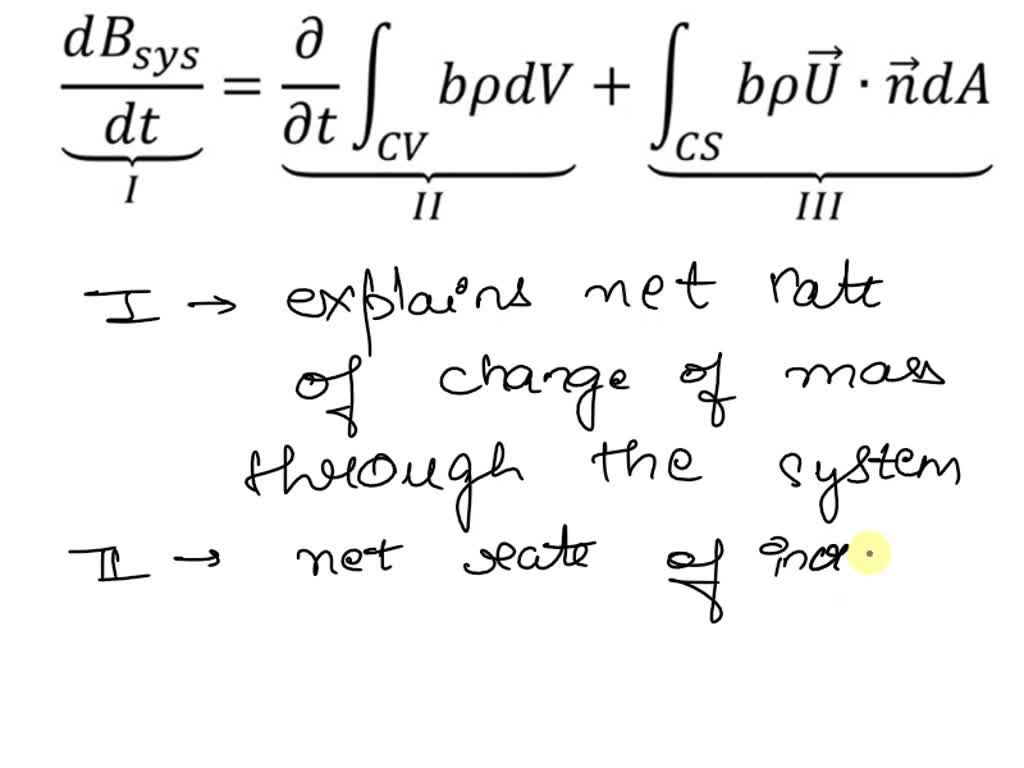 dB_sys/dt = ∂/∂t ∫_CV bρdV + ∫_CS bρU⃗ · n⃗dA
I II III
I → explains net rate
of change of mass
through the system
II → net rate of incr